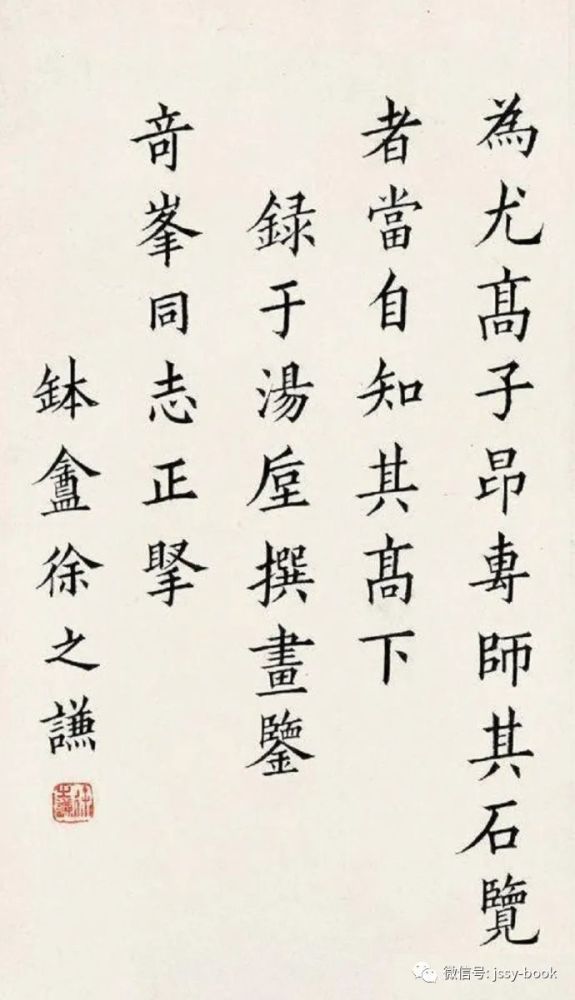 為尤髙子昂專師其石覽
者當自知其髙下
録于湯垕撰畫鑒
竒峯同志正掔
缽盦徐之謙
徐之謙
微信号: jssy-book